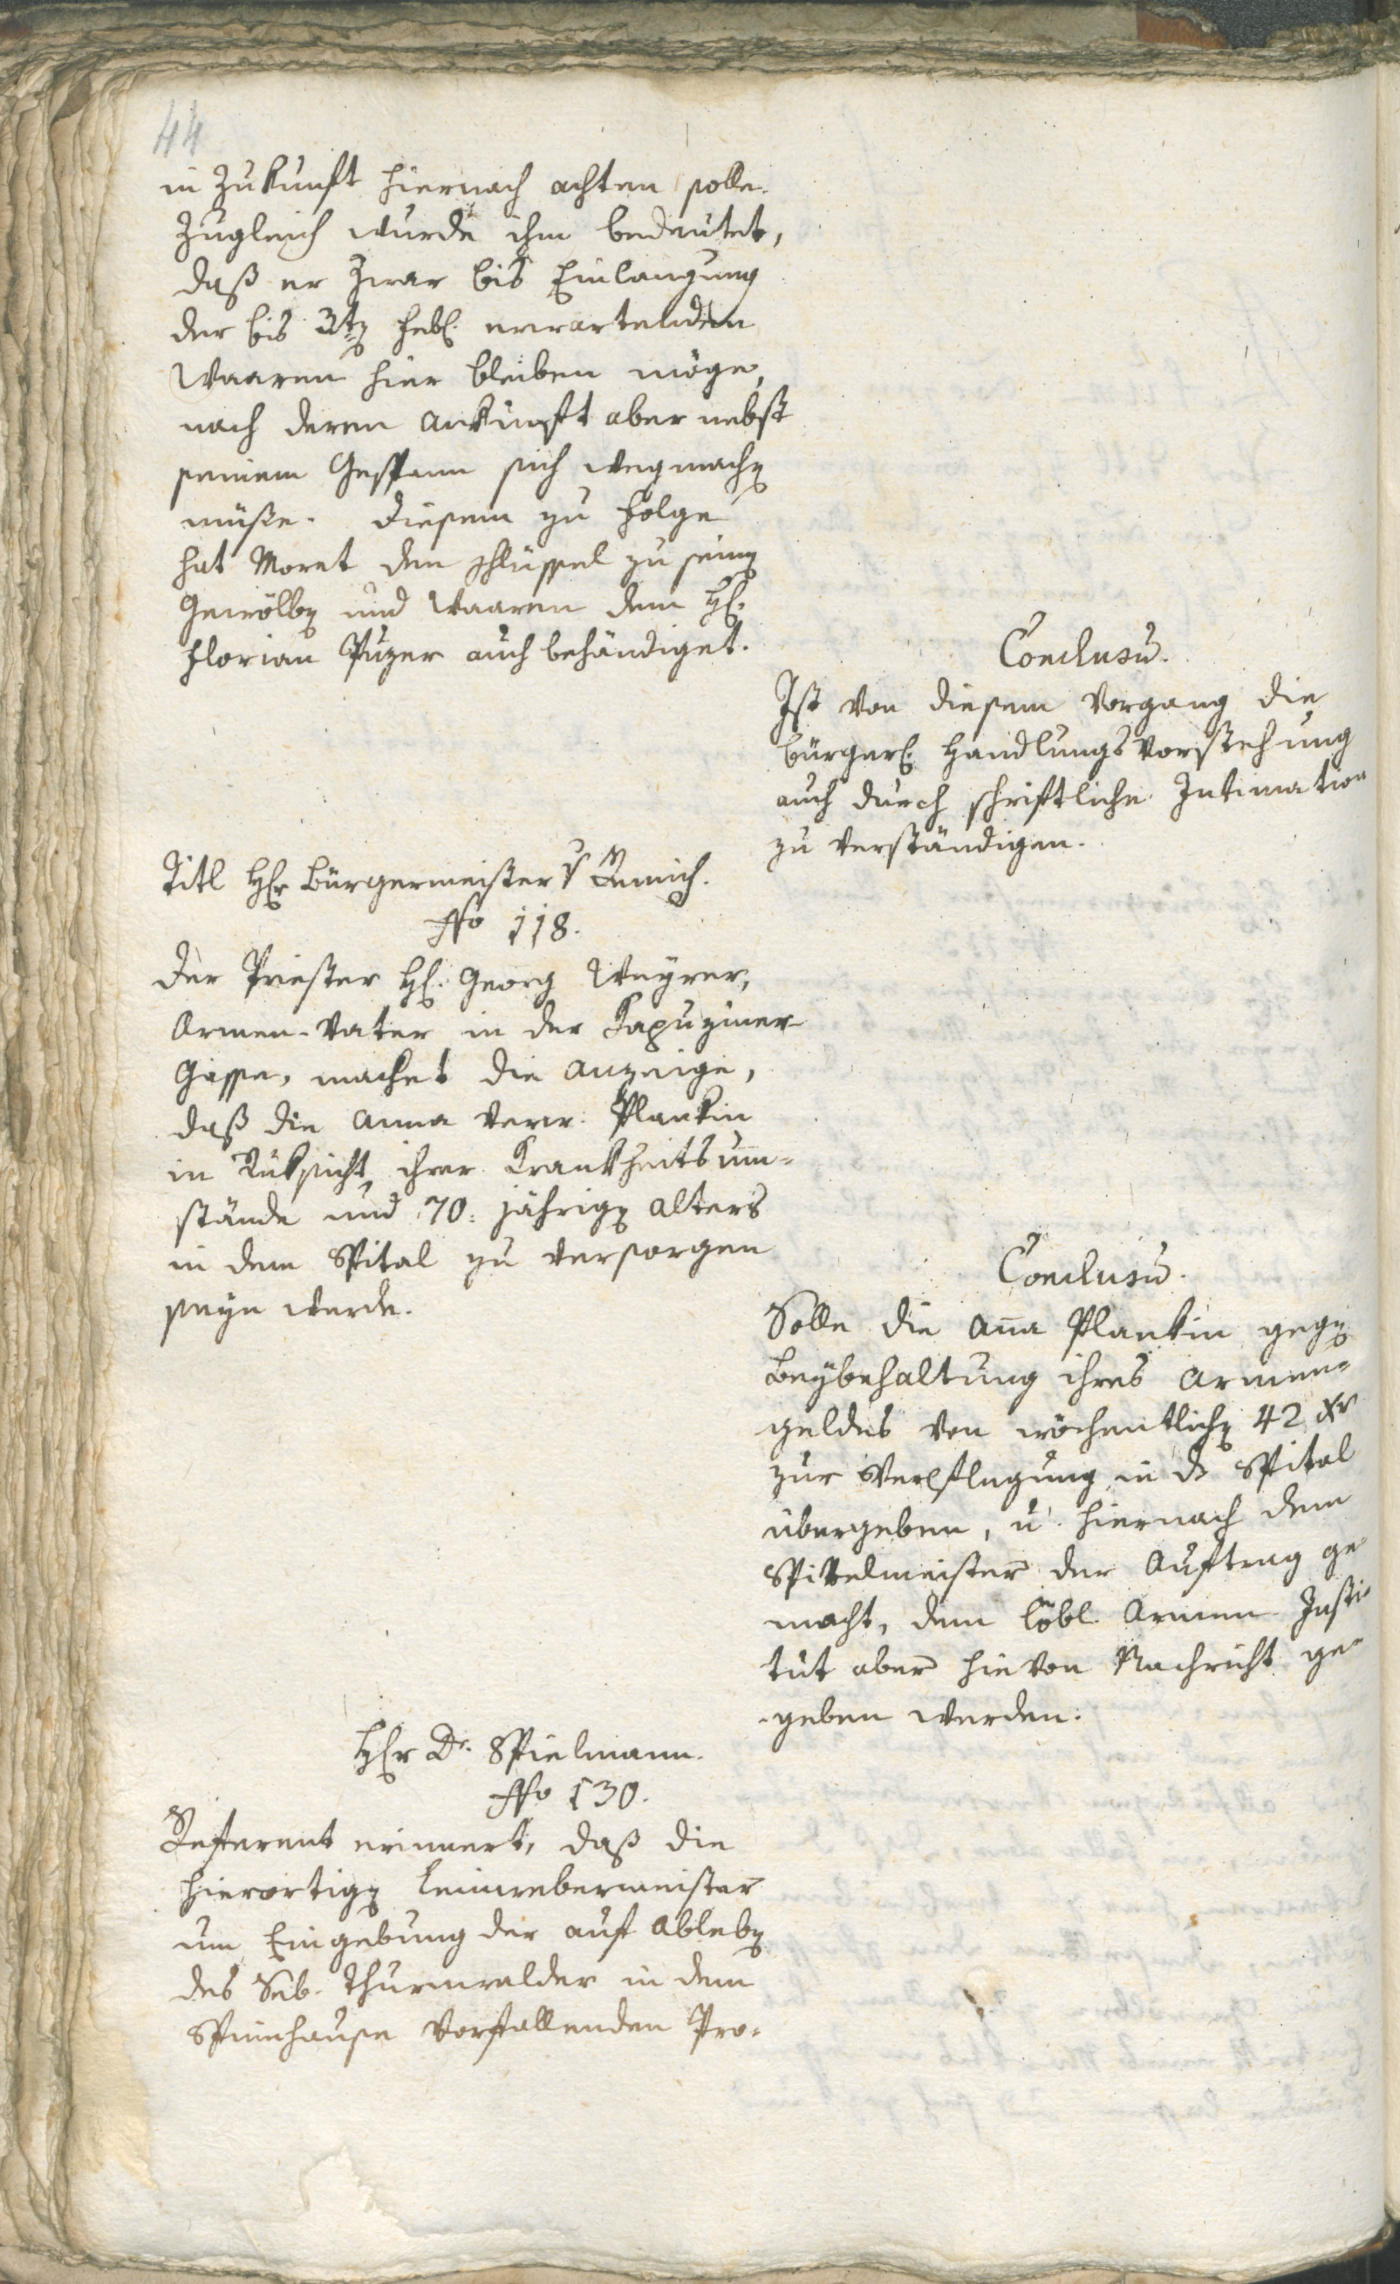 44
in Zukunft hiernach achten solle.
Zugleich wurde ihm bedeutet,
daß er zwar bis Einlangung
der bis 3tꝫ Febl. erwartenden
Waaren hier bleiben möge,
nach deren Ankunft aber nebst
seinem Gespann sich wegmachen
müße. Diesem zu Folge
hat Moret den Schlüssel zu seinen
Gewölben und Waaren dem H.
Florian Puzer auch behändiget.
Conclusū.
Ist von diesem Vorgang die
bürgerl. Handlungsvorstehung
auch durch schriftliche Intimation
zu verständigen.
Titl Hr Bürgermeister v
No 118.
Der Priester H. Georg Weyrer,
Armen-Vater in der Kapuziner
Gasse, machet die Anzeige,
daß die Anna verw. Plankin
in Rüksicht ihrer Krankheitsum=
stände und 70. jährigen Alters
in dem Spital zu versorgen
seyn werde.
Conclusū.
Solle die Aña Plankin gegen
Beybehaltung ihres Armen=
geldes von wöchentlichen 42 Xr
zur Verpflegung in ds Spital
übergeben, u. hiernach dem
Spittelmeister der Auftrag ge
macht, dem löbl. Armen Insti=
tut aber hievon Nachricht ge=
geben werden.
Hr Dr. Spielmann.
No 130.
Refferent erinnert, daß die
hierortigen Leinwebermeister
um Eingebung der auf Ableben
des Seb. Thurnwalder in dem
Spinnhause vorfallenden Pro=